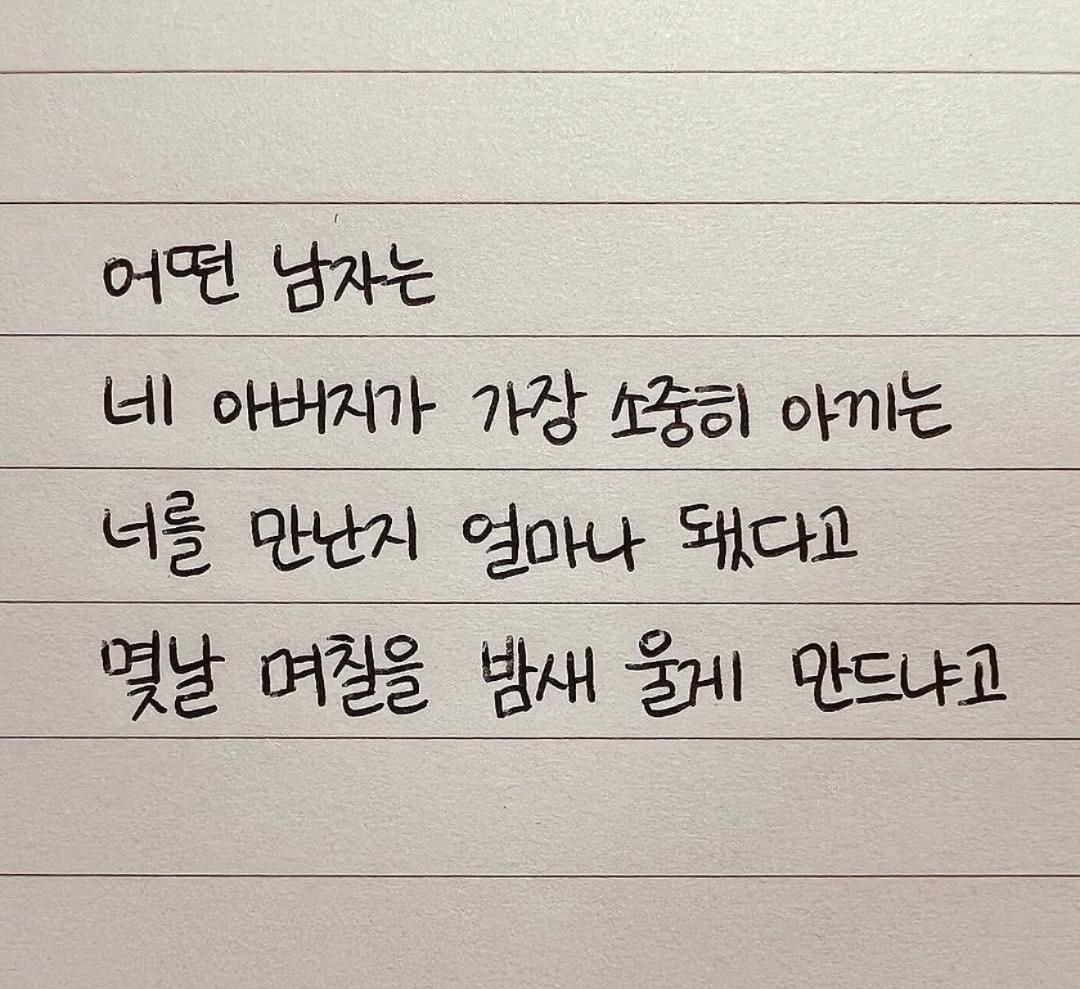 어떤 남자는
네 아버지가 가장 소중히 아끼는
너를 만난지 얼마나 됐다고
몇날 며칠을 밤새 울게 만드냐고